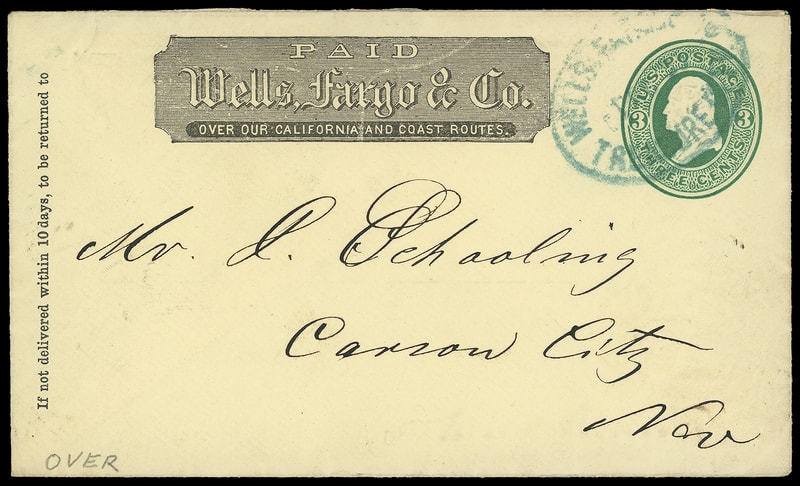 PAID
Wells, Fargo & Co.
OVER OUR CALIFORNIA AND COAST ROUTES.
If not delivered within 10 days, to be returned to
WELLS, FARGO &
TR
REE
U.S. POSTAGE
3 3
THREE CENTS
Mr. J. Schooling
Carson City
Nev
OVER